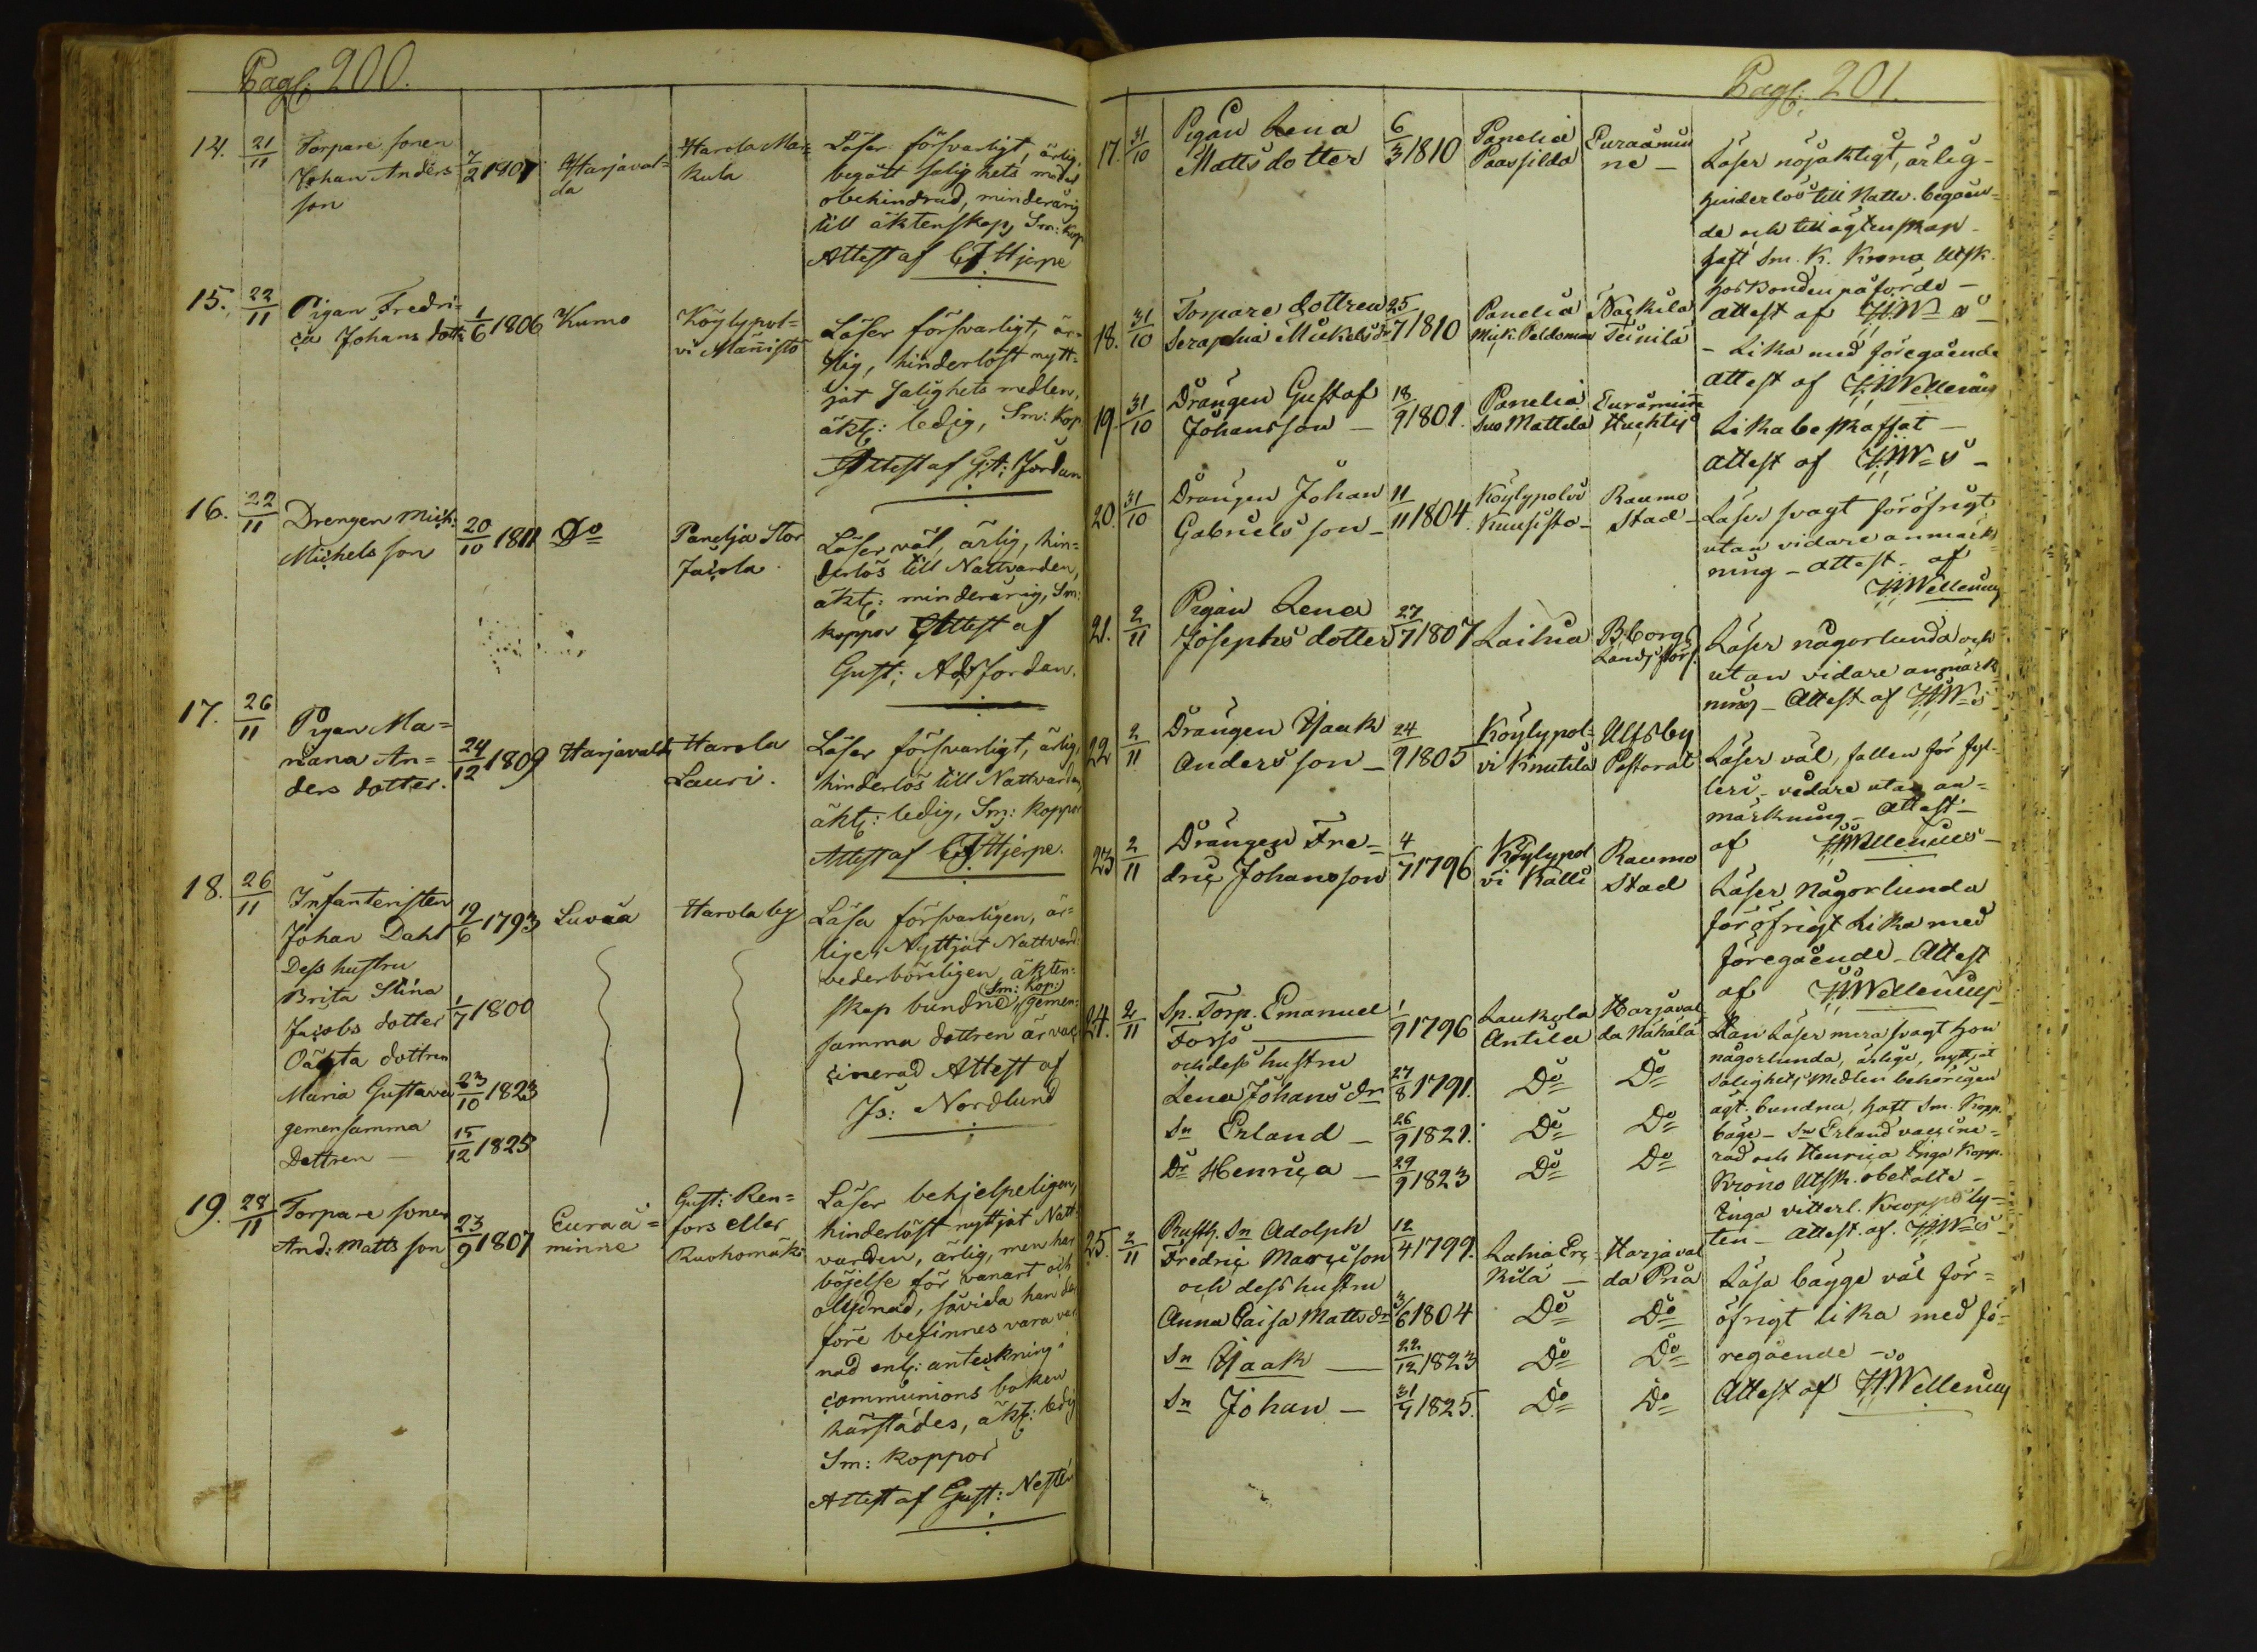 Pag: 200.
14. 21/11 Torpare sonen
Johan Anders
son
7/2 1807
Harjaval=
da
Harola Mar=
kula
Läser försvarligt, ärlig,
begått salighets medel
obehindrad, minderårig
till äktenskap, Sm: Kop
Attest af CJ Hjerpe
15. 22/11 Pigan Fredri=
ca Johans dott:
1/6 1806
Kumo
Köylypol=
vi Mannistö
Läser försvarligt, är=
lig, hinderlöst nytt=
jat salighets medlen,
äkt: ledig, Sm: Kop
Attest af G:A: Jordan
16. 22/11 Drengen Mich:
Michels son
20/10 1811
Do
Panelja Stor
Jacola
Läser väl, ärlig, hin=
derlös till Nattvarden,
äkt: minderårig, Sm:
koppor Attest af
Gust: Ad: Jordan.
17. 26/11 Pigan Ma=
riana An=
ders dotter.
24/12 1809
Harjavalda
Harola
Lauri.
Läser försvarligt, ärlig,
hinderlös till Nattvarden,
äkt: ledig, Sm: koppor
Attest af CJ Hjerpe.
18. 26/11 Infanteristen
Johan Dahl
19/6 1793
Luvaa
Harola by
Dess hustru
Brita Stina
Jacobs dotter
1/7 1800
Oäkta dottren
Maria Gustava
23/10 1823
gemensamma
Dottren —
15/12 1825
Läsa försvarligen, är=
lige, Nyttjat Nattvard:
vederbörligen, äkten:
skap bundne, (Sm: Kop:) gemen:
samma dottren är vac
cinerad Attest af
Js: Nordlund
19. 28/11 Torpare sonen
And: Matts son
23/9 1807
Euraå=
minne
Gust: Ren=
fors eller
Ruohomäki
Läser behjelpeligen,
hinderlöst nyttjat Natt
varden, ärlig, men har
böjelse för vanart och
olydnad, såvida han der
före befinnes vara var
nad enl: anteckning i
communions boken
härstädes, äkt: ledig
Sm: koppor
Attest af Gust: Nestén
Pag: 201.
17. 31/10 Pigan Lena
Matts dotter
6/3 1810
Panelia
Paassilda
Euraåmin
ne —
Läser nöjaktigt, ärlig-
hinderlös till Nattv. begåen-
de och till ägtenskap-
haft Sm. K. Krono Utsk.
hos Bonden påförde —
attest af HWs —
18. 31/10 Torpare dottren
Seraphia Mickelsdr
25/7 1810
Panelia
Mick. Peldoman
Nackila
Teinila
— Lika med föregående
attest af HWellenius
19. 31/10 Drängen Gustaf
Johansson —
18/9 1801.
Panelia
Suo Mattila
Euraminne
Huchtis
Lika beskaffat —
attest af HWs —
20. 31/10 Drängen Johan
Gabriels son —
11/11 1804
Köylypolvi
Knusisto —
Raumo
Stad —
Läser svagt föröfrigt
utan vidare anmärk
ning — attest — af
HWellenius
21. 2/11 Pigan Lena
Josephs dotter
27/7 1807
Laihia
B:borgs
Lands förs.
Läser någorlunda och
utan vidare anmärk
ning — Attest af HWs
22 2/11 Drängen Isaak
Anders son —
24/9 1805
Köylypol-
vi Knutila
Ulfsby
Pastorat
Läser väl, fallen för fyl-
leri — vidare utan an=
märkning — Attest —
af HWellenius —
23 2/11 Drängen Fre=
dric Johansson
4/7 1796
Köylypol
vi Kalli
Raumo
Stad
Läser Någorlunda
föröfrigt Lika med
föregående — Attest
af HWellenius
24. 2/11 Sp. Torp. Emanuel
Forss ——
1/9 1796
Laukola
Antila
Harjaval
da Näkälä
och dess hustru
Lena Johans dr
27/8 1791.
Do Do
Sn Erland —
26/9 1821.
Do Do
Dr Henrica —
29/9 1823
Do Do
Han Läser mera svagt hon
någorlunda, ärlige, nyttjat
Salighets Medlen behörigen
ägt. bundna, haft Sm. Kopp.
bäge — Sn Erland vaccine=
rad och Henrica Inga Kopp.
Krono Utsk. obetalte —
Inga vitterl. Kropps ly=
ten — Attest. af. HWs
25. 2/11 Rusth. Sn Adolph
Fredric Marcisson
12/4 1799.
Lahia Erc
kilä —
Harjaval
da Pria
och dess hustru
Anna Caisa Matts dr
3/6 1804
Do Do
Sn Isaak —
22/12 1823
Do Do
Sn Johan —
31/7 1825.
Do Do
Läsa bägge väl för=
öfrigt lika med fö-
regående —
Attest af HWellenius